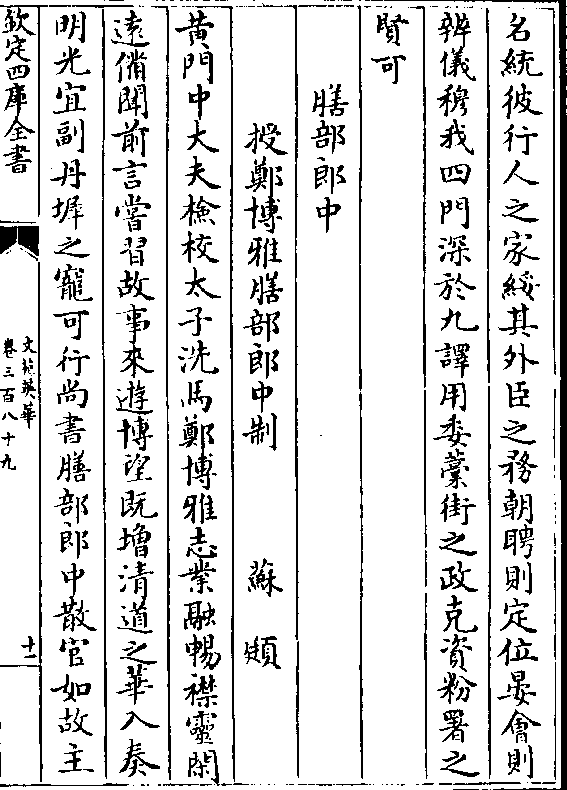 名統彼行人之家綏其外臣之務朝聘則定位晏會則
辨儀穆我四門深於九譯用委藁街之政克資粉署之
賢可
膳部郎中
授鄭博雅膳部郎中制　蘇頲
黄門中大夫檢校太子洗馬鄭博雅志業融暢襟靈閑
遠備聞前言嘗習故事來遊博望既增清道之華入奏
明光宜副丹墀之寵可行尚書膳部郎中散官如故主
欽定四庫全書
文苑英華
卷三百八十九
十一